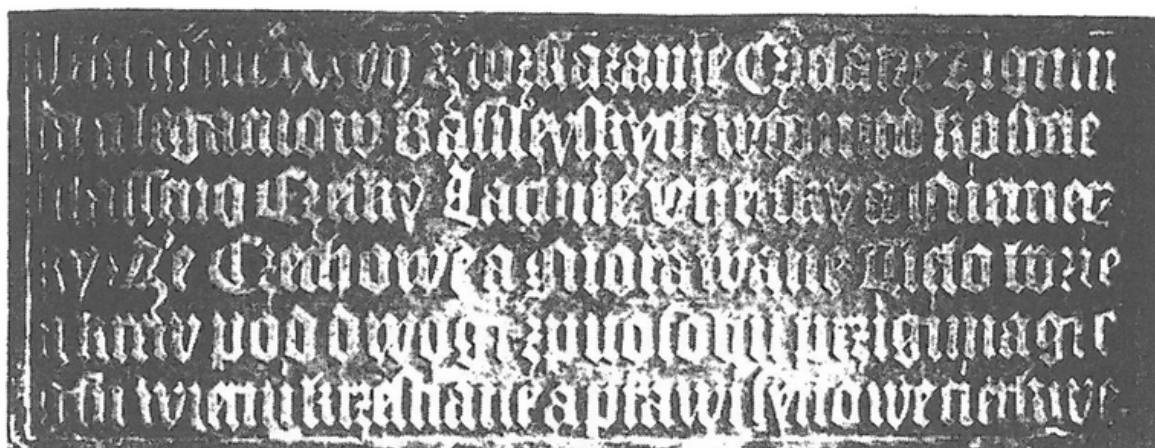 z rozkazanie Czesarze zigmu
a legatuow Basileyskych w tomto kostele
Czesky Latinie vhersky a Niemecz
ky Ze Czechowe a Morawane Tielo bozie
a krew pod dwogi zpuosobu przigimagicz
gsu wierni krzestiane a prawi synowe cierkwe